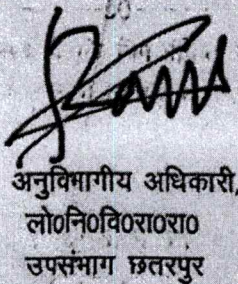 अनुविभागीय अधिकारी,
लो०नि०वि०रा०रा०
उपसंभाग छतरपुर